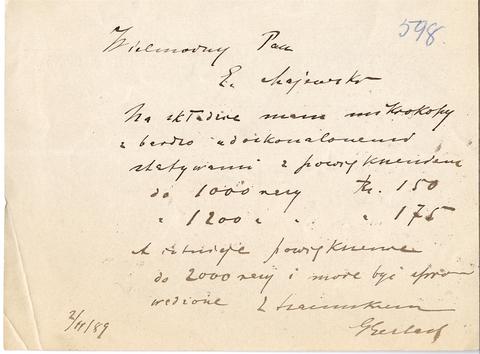 598.
Wielmożny Pan
E. Majewski
Na składzie mam mikroskopy
z bardzo udoskonalonemi
statywami z powiększeniem
do 1000 razy Rs. 150
" 1200 " " " 175
A istnieje powiększenie
do 2000 razy i może być spro
wadzone z szacunkiem
GGerlach
2/II/89